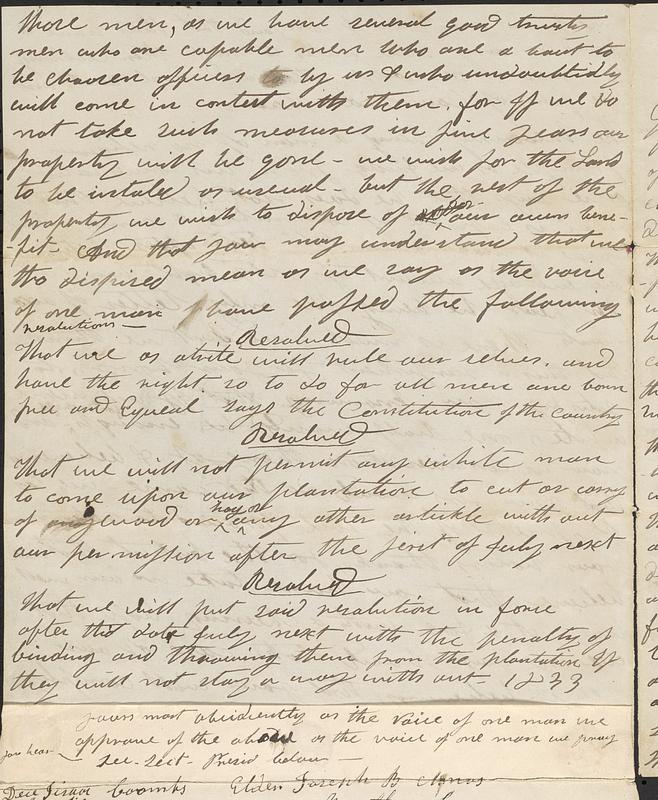 those men, as we have several good trusts
men who are capable men who are a bout to
be choosen officers to by us & who undoubtidly
will come in contest with them, for If we do
not take such measures in five years our
property will be gone - we wish for the Land
to be instaled as useual - but the rest of the
property we wish to dispose of for our owen bene-
-fit - And that you may understand that we
tho dispised mean as we say as the voice
of one man / have passed the following
resolutions -
Resolved
That we as a tribe will rule our selves, and
have the right so to do for all men are born
free and Equeal says the Constitution of the country
Resolved
That we will not permit any white man
to come upon our plantation to cut or carry
of any wood or hay or any other artickle with out
our permission after the first of July next
Resolved
That we will put said resolution in force
after that date July next with the penalty of
binding and throwing them from the plantation If
they will not stay a way with out - 1833
yours most abidiently as the voice of one man we
approave of the above as the voice of one man we pray
you hear
Sec- Sect- Presid below -
Dea Isaac Coombs Elder Joseph B